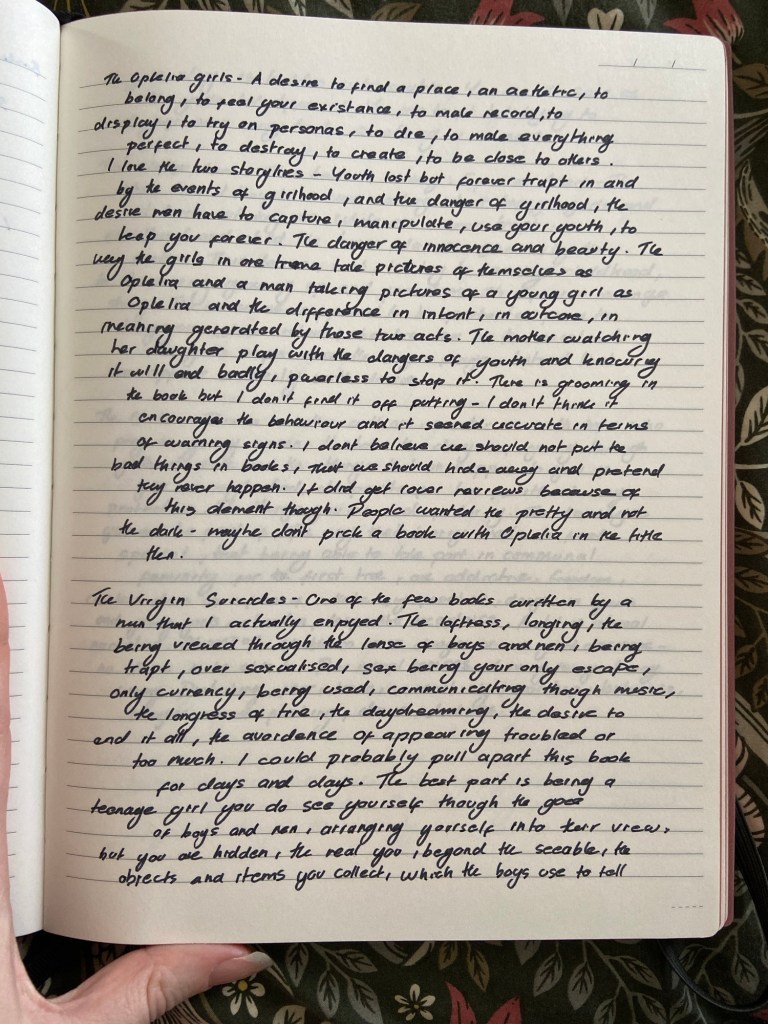 The Ophelia girls - A desire to find a place, an aethetic, to
belong, to feel your existance, to make record, to
display, to try on personas, to die, to make everything
perfect, to destroy, to create, to be close to others.
I love the two storylines - Youth lost but forever trapt in and
by the events of girlhood, and the danger of girlhood, the
desire men have to capture, manipulate, use your youth, to
keep you forever. The danger of innocence and beauty. The
way the girls in one frame take pictures of themselves as
Ophelia and a man taking pictures of a young girl as
Ophelia and the difference in intent, in outcome, in
meaning generated by those two acts. The mother watching
her daughter play with the dangers of youth and knowing
it will end badly, powerless to stop it. There is grooming in
the book but I don't find it off putting - I don't think it
encourages the behaviour and it seemed accurate in terms
of warning signs. I dont believe we should not put the
bad things in books, that we should hide away and pretend
they never happen. It did get lower reviews because of
this element though. People wanted the pretty and not
the dark - maybe don't pick a book with Ophelia in the title
then.
The Virgin Suicides - One of the few books written by a
man that I actually enjoyed. The loftness, longing, the
being viewed through the lense of boys and men, being
trapt, over sexualised, sex being your only escape,
only currency, being used, communicating though music,
the longness of time, the daydreaming, the desire to
end it all, the avoidence of appearing troubled or
too much. I could probably pull apart this book
for days and days. The best part is being a
teenage girl you do see yourself though the
of boys and men, arranging yourself into their view,
but you are hidden, the real you, beyond the seeable, the
objects and items you collect, which the boys use to tell